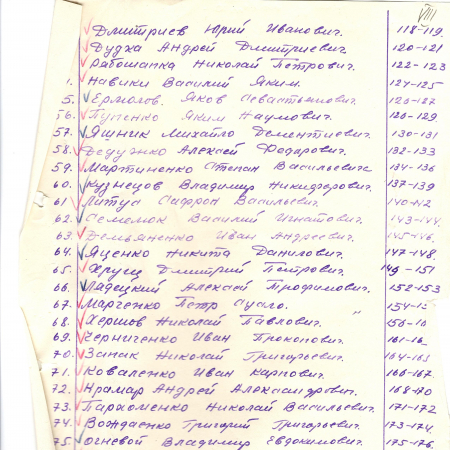 VIII
Дмитриев Юрий Иванович. 118-119.
Дудка Андрей Дмитриевич 120-121
Работапка Николай Петрович. 122-123
1. Навики Василий Яким. 124-125
5. Ермолов. Яков Севастьянович.
56. Пупенко Яким Наумович. 128-129
57. Яшник Михайло Дементиевич. 130-131
58. Дедужко Алексей Федорович. 132-133
59. Мартиненко Степан Васильевич 134-136
60. Кузнецов Владимир Никидзорович. 137-139
61 Литус Сафрон Васильевич. 140-142
62. Семелюк Василий Игнатович. 143-144.
63. Демьяненко Иван Андреевич. 145-146.
64. Яценко Никита Данилович. 147-148.
65. Хрущ Дмитрий Петрович. 149-151
66. Ладецкий Алексей Трофимович. 152-153
67. Марченко Петр
68. Хершов Николай Павлович.
69. Черниченко Иван Прокопович.
70. Запак Николай Григорьевич. 164-165
71. Коваленко Иван Карпович. 166-167.
72. Крамар Андрей Александрович. 168-170
73. Пархоменко Николай Васильевич. 171-172
74. Вождаенко Григорий Григорьевич. 173-174.
75. Огневой Владимир Евдокимович. 175-176.